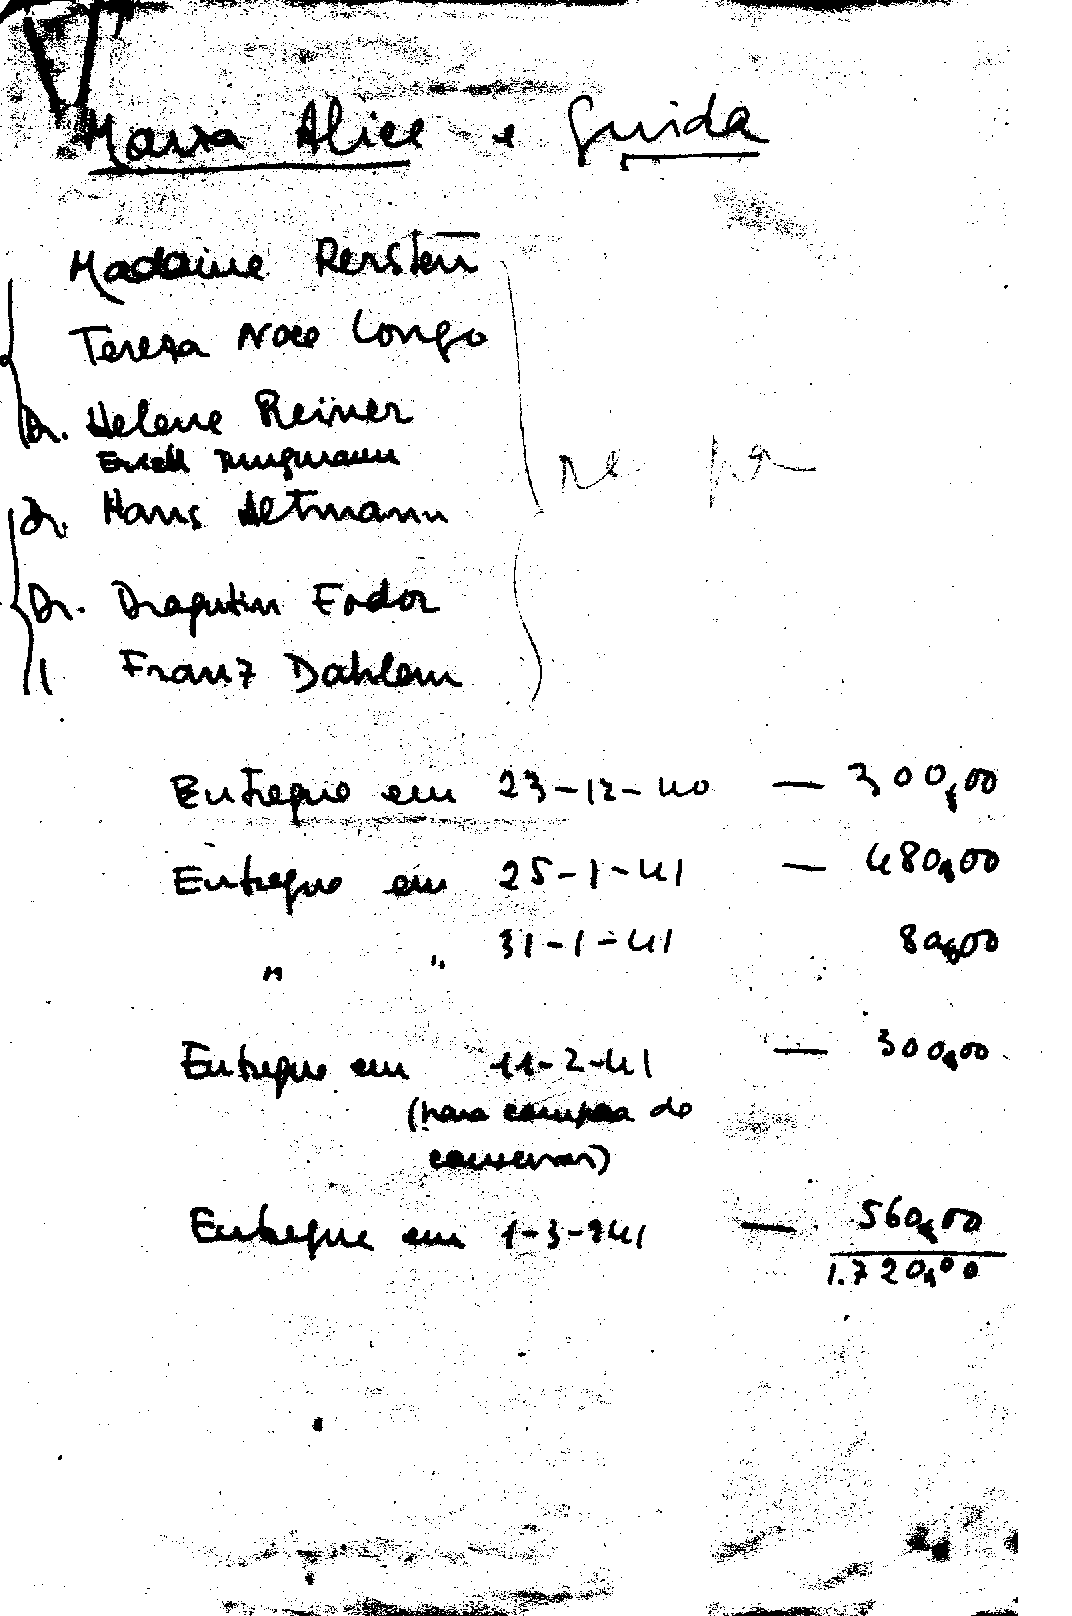 Maria Alice e Guida
Madaine Kersten
Teresa Noce Longo
Dr. Helene Reiner
Erich Jungmann
Dr. Hans Altmann
Dr. Dragutin Fodor
" Franz Dahlem
Entregue em 23-12-40 — 300,00
Entregue em 25-1-41 — 480,00
" " 31-1-41 80,00
Entregue em 11-2-41 — 300,00
(para compra de
conservas)
Entregue em 1-3-41 — 560,00
1.720,00